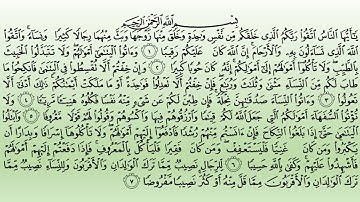 بِسْمِ ٱللَّهِ ٱلرَّحْمَٰنِ ٱلرَّحِيمِ
يَٰٓأَيُّهَا ٱلنَّاسُ ٱتَّقُوا۟ رَبَّكُمُ ٱلَّذِى خَلَقَكُم مِّن نَّفْسٍ وَٰحِدَةٍ وَخَلَقَ مِنْهَا زَوْجَهَا وَبَثَّ مِنْهُمَا رِجَالًا كَثِيرًا وَنِسَآءً وَٱتَّقُوا۟
ٱللَّهَ ٱلَّذِى تَسَآءَلُونَ بِهِۦ وَٱلْأَرْحَامَ إِنَّ ٱللَّهَ كَانَ عَلَيْكُمْ رَقِيبًا ١ وَءَاتُوا۟ ٱلْيَتَٰمَىٰٓ أَمْوَٰلَهُمْ وَلَا تَتَبَدَّلُوا۟ ٱلْخَبِيثَ
بِٱلطَّيِّبِ وَلَا تَأْكُلُوٓا۟ أَمْوَٰلَهُمْ إِلَىٰٓ أَمْوَٰلِكُمْ إِنَّهُۥ كَانَ حُوبًا كَبِيرًا ٢ وَإِنْ خِفْتُمْ أَلَّا تُقْسِطُوا۟ فِى ٱلْيَتَٰمَىٰ فَٱنكِحُوا۟ مَا
طَابَ لَكُم مِّنَ ٱلنِّسَآءِ مَثْنَىٰ وَثُلَٰثَ وَرُبَٰعَ فَإِنْ خِفْتُمْ أَلَّا تَعْدِلُوا۟ فَوَٰحِدَةً أَوْ مَا مَلَكَتْ أَيْمَٰنُكُمْ ذَٰلِكَ أَدْنَىٰٓ أَلَّا
تَعُولُوا۟ ٣ وَءَاتُوا۟ ٱلنِّسَآءَ صَدُقَٰتِهِنَّ نِحْلَةً فَإِن طِبْنَ لَكُمْ عَن شَىْءٍ مِّنْهُ نَفْسًا فَكُلُوهُ هَنِيٓـًٔا مَّرِيٓـًٔا ٤ وَلَا
تُؤْتُوا۟ ٱلسُّفَهَآءَ أَمْوَٰلَكُمُ ٱلَّتِى جَعَلَ ٱللَّهُ لَكُمْ قِيَٰمًا وَٱرْزُقُوهُمْ فِيهَا وَٱكْسُوهُمْ وَقُولُوا۟ لَهُمْ قَوْلًا مَّعْرُوفًا ٥ وَٱبْتَلُوا۟
ٱلْيَتَٰمَىٰ حَتَّىٰٓ إِذَا بَلَغُوا۟ ٱلنِّكَاحَ فَإِنْ ءَانَسْتُم مِّنْهُمْ رُشْدًا فَٱدْفَعُوٓا۟ إِلَيْهِمْ أَمْوَٰلَهُمْ وَلَا تَأْكُلُوهَآ إِسْرَافًا وَبِدَارًا أَن
يَكْبَرُوا۟ وَمَن كَانَ غَنِيًّا فَلْيَسْتَعْفِفْ وَمَن كَانَ فَقِيرًا فَلْيَأْكُلْ بِٱلْمَعْرُوفِ فَإِذَا دَفَعْتُمْ إِلَيْهِمْ أَمْوَٰلَهُمْ
فَأَشْهِدُوا۟ عَلَيْهِمْ وَكَفَىٰ بِٱللَّهِ حَسِيبًا ٦ لِّلرِّجَالِ نَصِيبٌ مِّمَّا تَرَكَ ٱلْوَٰلِدَانِ وَٱلْأَقْرَبُونَ وَلِلنِّسَآءِ نَصِيبٌ مِّمَّا
تَرَكَ ٱلْوَٰلِدَانِ وَٱلْأَقْرَبُونَ مِمَّا قَلَّ مِنْهُ أَوْ كَثُرَ نَصِيبًا مَّفْرُوضًا ٧